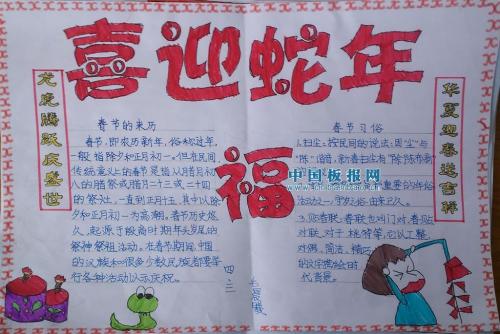 喜迎蛇年
龙虎腾跃庆盛世
华夏迎春送吉祥
福
中国板报网
春节的来历
春节,即农历新年,俗称过年,
一般指除夕和正月初一。但在民间,
传统意义上的春节是指从腊月初八
的腊祭或腊月二十三或二十四
的祭灶,一直到正月十五,其中以除
夕和正月初一为高潮。春节历史悠
久,起源于殷商时期年头岁尾的
祭神祭祖活动。在春节期间,中国
的汉族和很多少数民族都要举
行各种活动以示庆祝。
春节习俗
1.扫尘:按民间的说法:因"尘"与
"陈"谐音,新春扫尘有"除陈布新"
重要的年俗
活动之一,守岁之俗由来已久。
3.贴春联:春联也叫门对、春贴
对联、对子、桃符等,它以工整、
对偶、简洁、精巧
的文字描绘时
代背景。
四
三